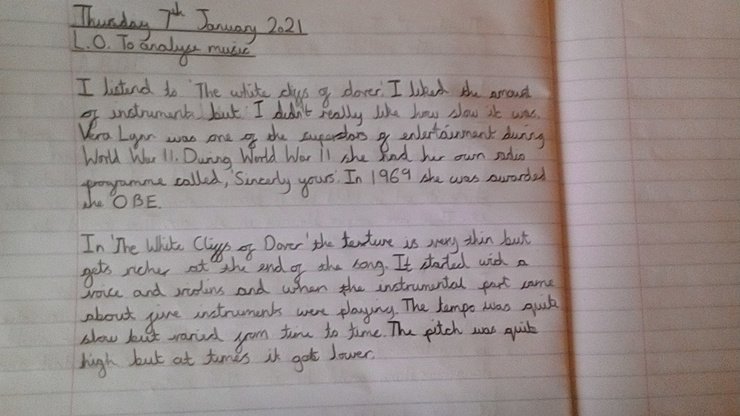 Thursday 7th January 2021
L.O. To analyse music
I listend to 'The white cliffs of dover'. I liked the amout
of instruments but I didn't really like how slow it was.
Vera Lynn was one of the superstars of entertainment during
World War II. During World War II she had her own radio
programme called, 'Sincerly yours'. In 1969 she was awarded
the OBE.
In 'The White Cliffs of Dover' the texture is very thin but
gets richer at the end of the song. It started with a
voice and violins and when the instrumental part came
about five instruments were playing. The tempo was quite
slow but varied from time to time. The pitch was quite
high but at times it got lower.